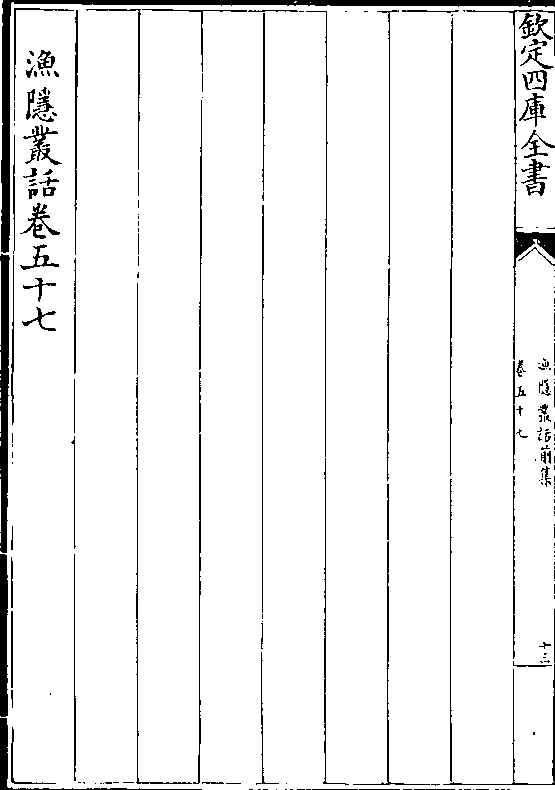 欽定四庫全書
漁隱叢話前集
卷五十七
十三
漁隱叢話卷五十七